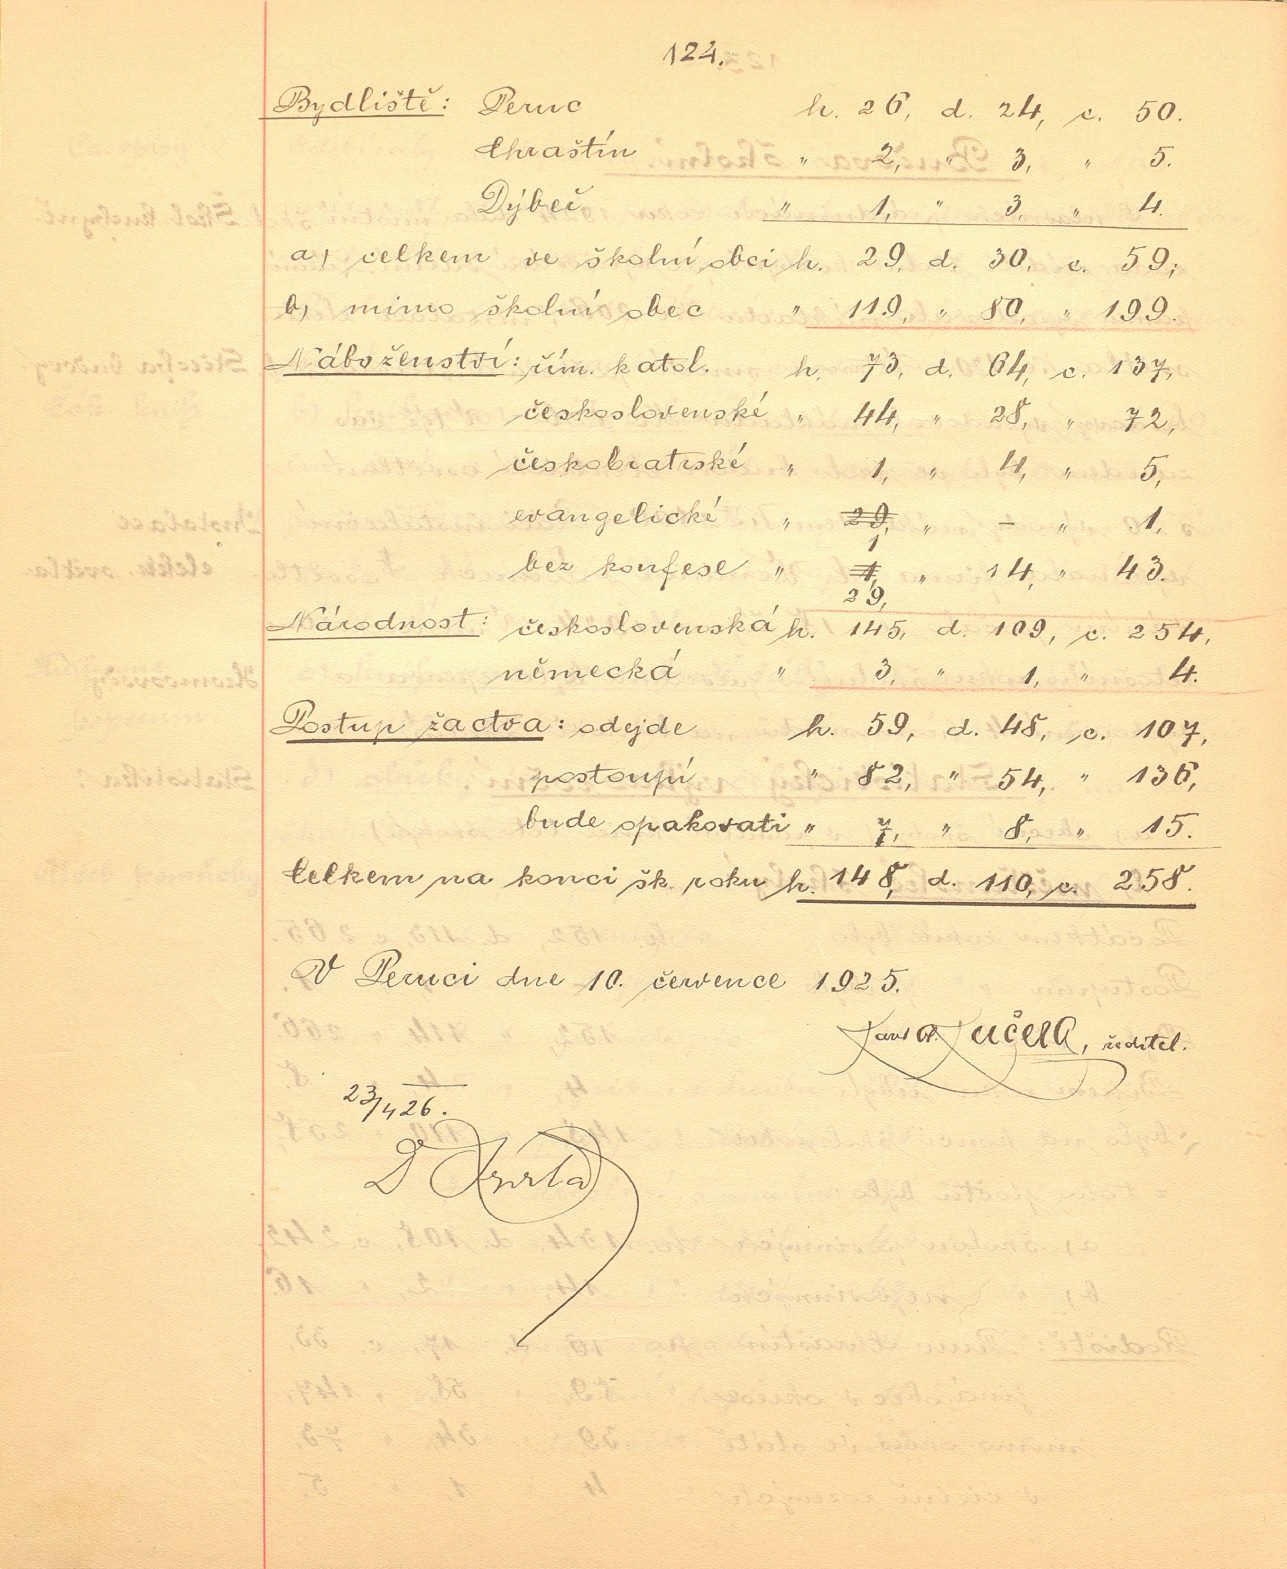 124.
Bydliště: Peruc h. 26, d. 24, c. 50.
Chraštín „ 2, „ 3, „ 5.
Dýbeř „ 1, „ 3, „ 4.
a) celkem ve školní obci h. 29, d. 30, c. 59;
b) mimo školní obec „ 119, „ 80, „ 199.
Náboženství: řím. katol. h. 73, d. 64, c. 137,
československé „ 44, „ 28, „ 72,
českobratrské „ 1, „ 4, „ 5,
evangelické „ 29, „ – „ 1,
1
bez konfese „ 1, „ 14, „ 43.
29,
Národnost: československá h. 145, d. 109, c. 254,
německá „ 3, „ 1, „ 4.
Postup žactva: odejde h. 59, d. 48, c. 107,
postoupí „ 82, „ 54, „ 136,
bude opakovati „ 7, „ 8, „ 15.
Celkem na konci šk. roku h. 148, d. 110, c. 258.
V Peruci dne 10. července 1925.
Kučera, ředitel.
23/4 26.